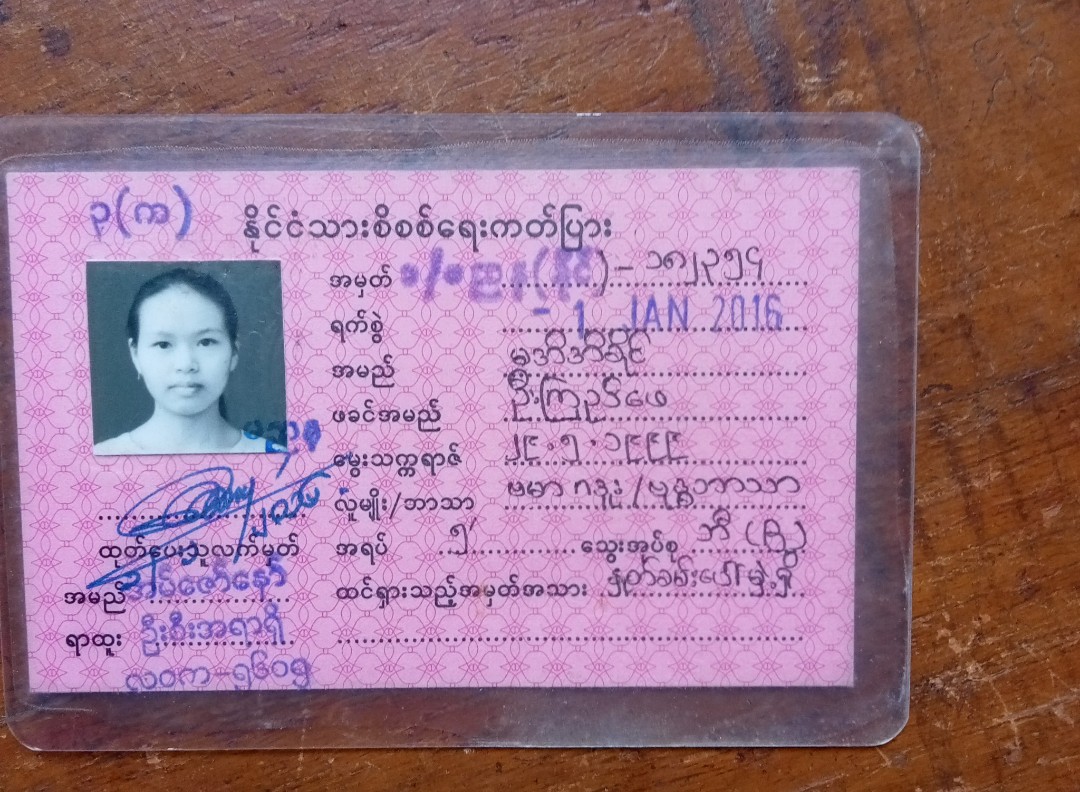 ၃(က)
နိုင်ငံသားစိစစ်ရေးကတ်ပြား
အမှတ် (နိုင်) - ၁၈၂၃၅၄
ရက်စွဲ - 1 JAN 2016
အမည် မအိအိခိုင်
ဖခင်အမည် ဦးကြည်
မွေးသက္ကရာဇ် ၂၄.၅.၁၉၉၉
လူမျိုး/ဘာသာ ဗမာ / ဗုဒ္ဓဘာသာ
အရပ် ၅' သွေးအုပ်စု ဘီ (B)
ထင်ရှားသည့်အမှတ်အသား နှုတ်ခမ်းပေါ်မှဲ့ရှိ
ထုတ်ပေးသူလက်မှတ်
အမည် အောင်ဇော်နော်
ရာထူး ဦးစီးအရာရှိ
လဝက-၅၆၀၅